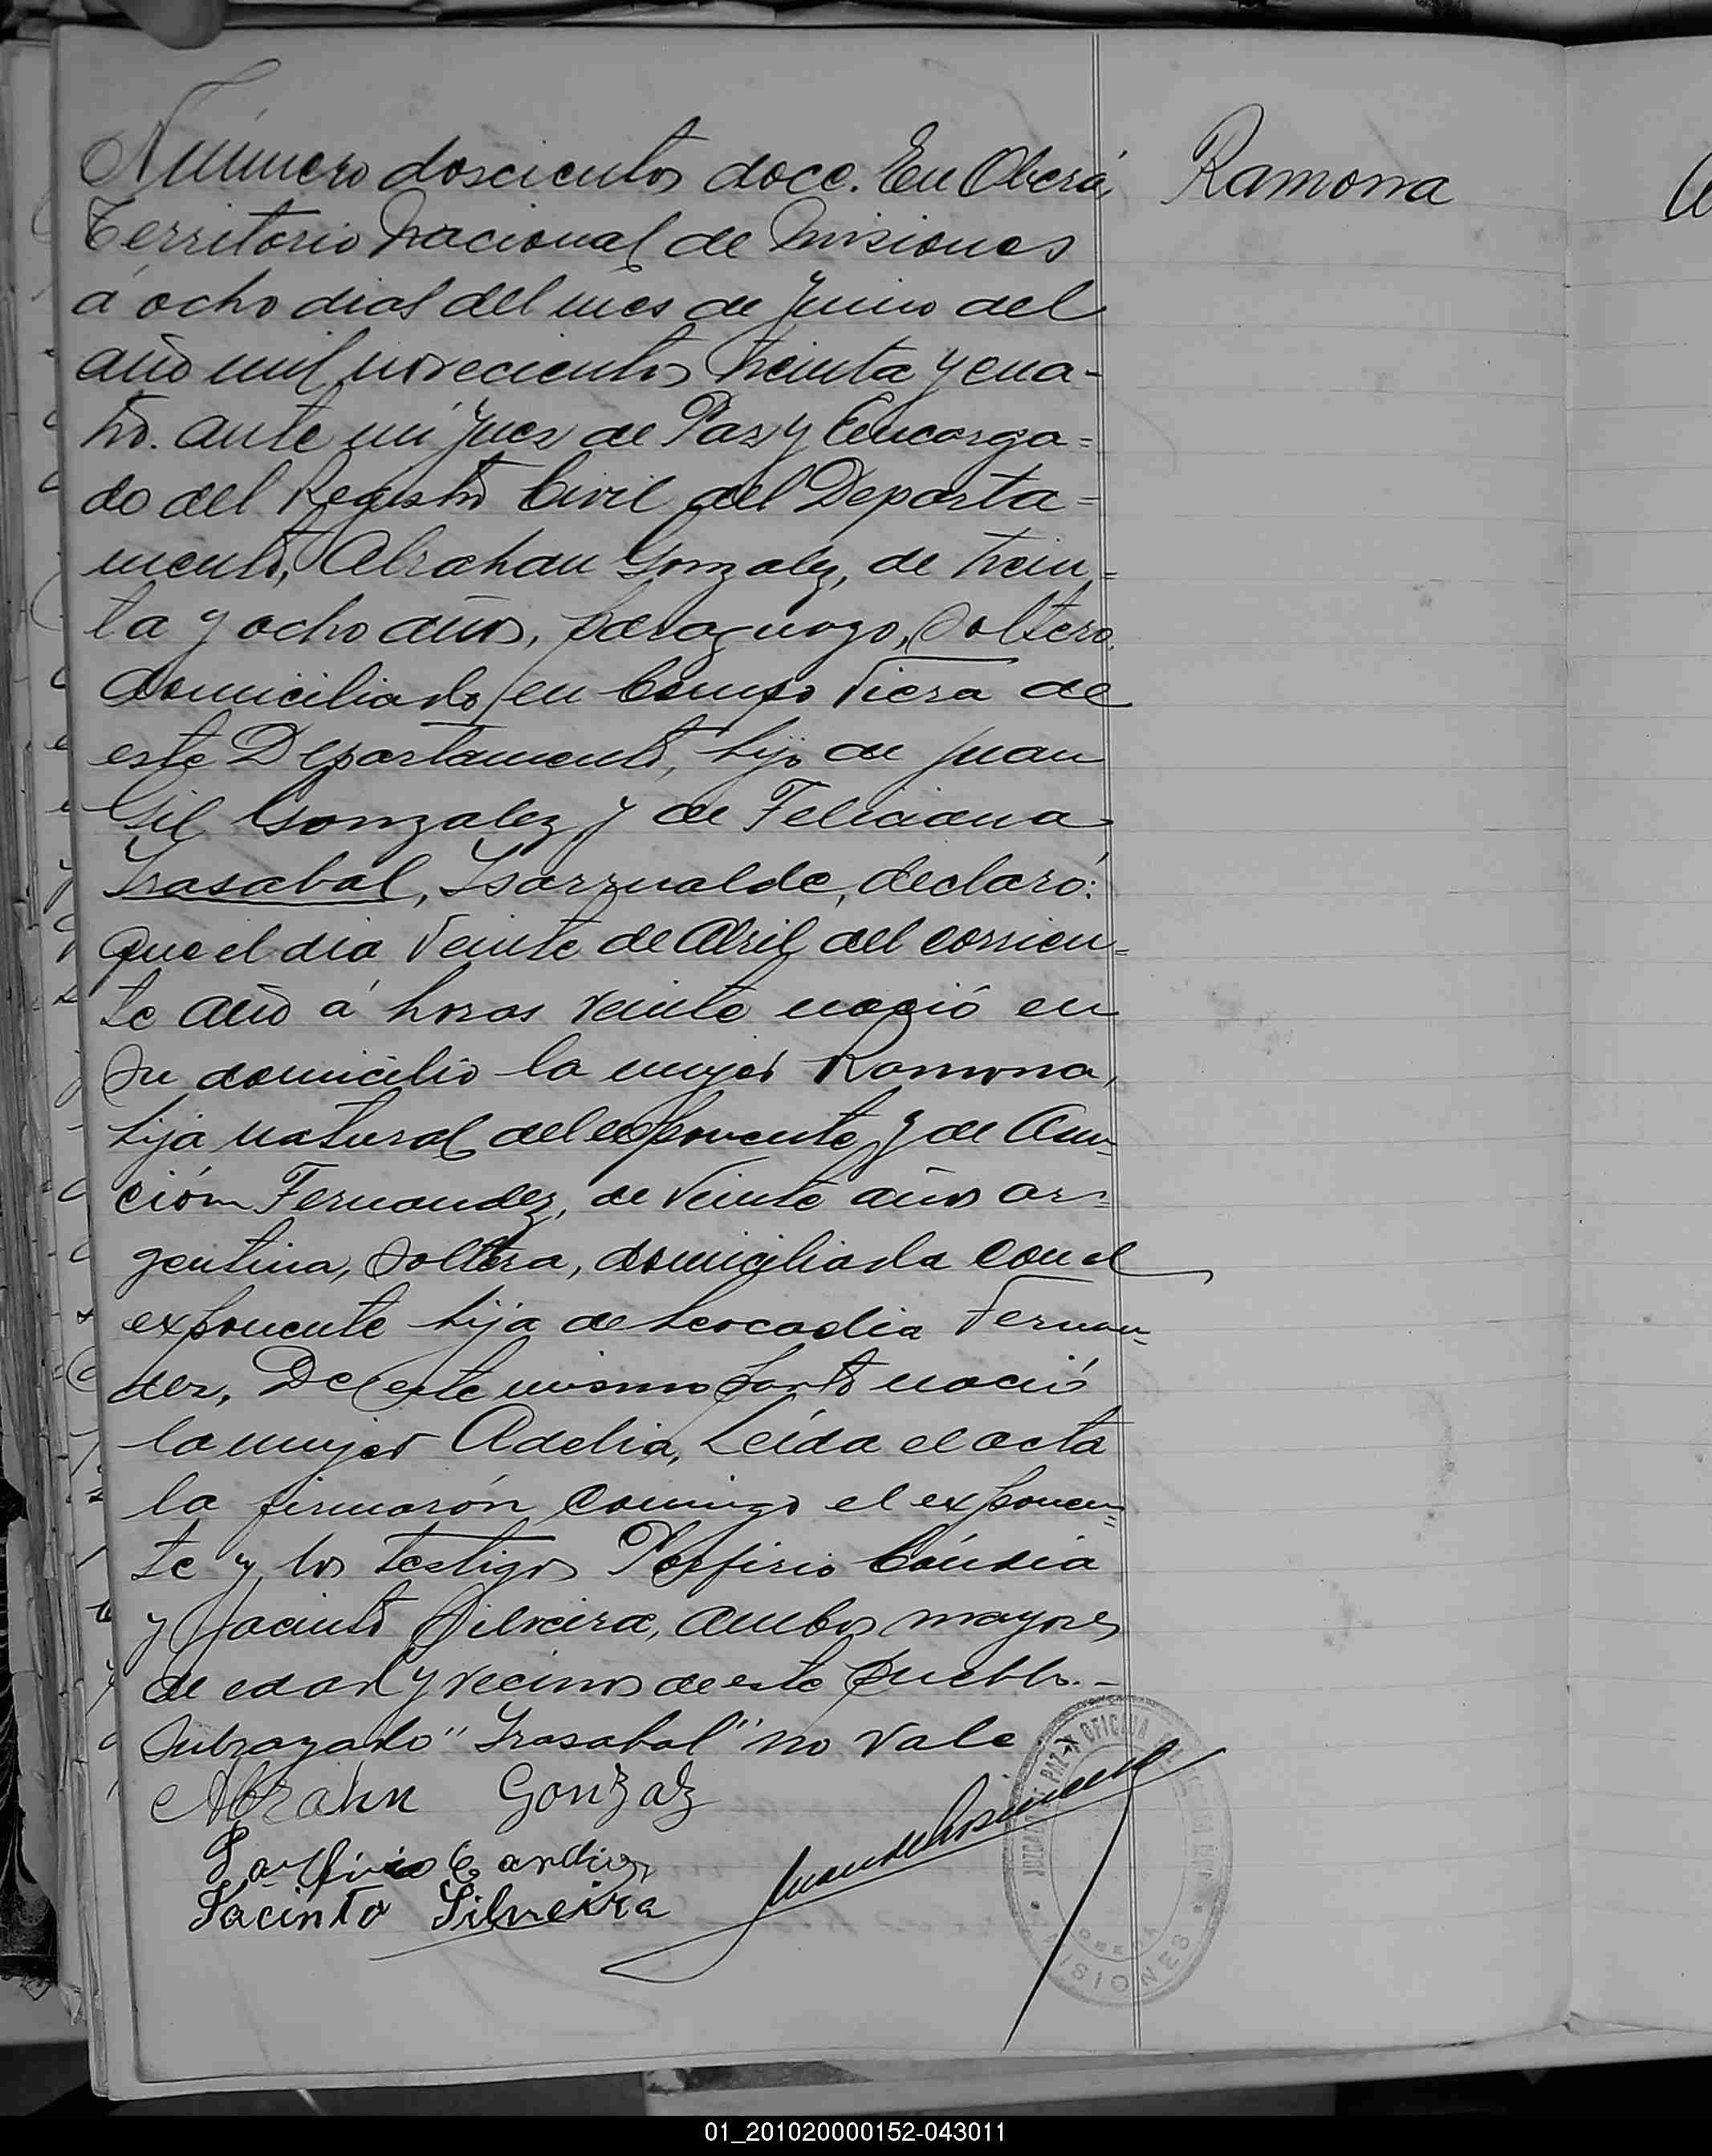 Número doscientos doce. En Oberá,
Ramona
Territorio Nacional de Misiones
á ocho dias del mes de Junio del
año mil novecientos treinta y cua-
tro. ante mí Juez de Paz y Encarga=
do del Registro Civil del Departa=
mento, Abrahan Gonzalez, de trein=
ta y ocho años, paraguayo, soltero,
domiciliado en Campo Viera de
este Departamento, hijo de Juan
Gil Gonzalez y de Feliciana
Irasabal, declaró:
que el dia Veinte de Abril del corrien=
te año á horas veinte nació en
su domicilio la mujer Ramona,
hija natural del exponente y de Asun-
ción Fernandez, de veinte años ar=
gentina, soltera, domiciliada con el
exponente hija de Leocadia Fernan=
dez, De este mismo parto nació
la mujer Adelia, Leída el acta
la firmarón conmigo el exponen=
te y los testigos Porfirio
y Jacinto Silveira, ambos mayores
de edad y vecinos de este pueblo.-
Subrayado "Irasabal" no vale
Abrahn Gonzaz
Jacinto Silveira
JUZGADO DE PAZ Y OFICINA DEL
OBERA
MISIONES
01_201020000152-043011